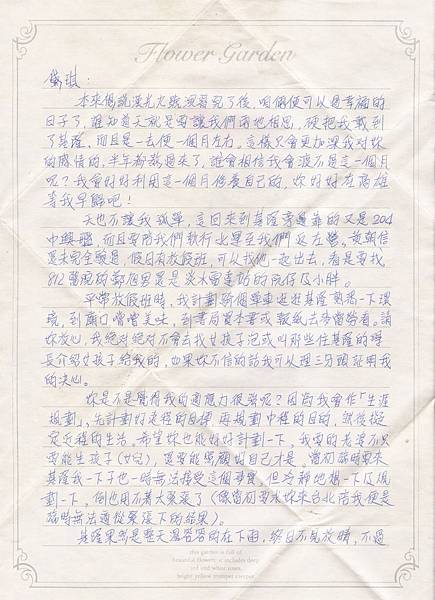 Flower Garden
本來傷疏漢光大敗演習完了後,咱倆便可以過幸福的
日子了,誰知老天就是要讓我們兩地相思,硬把我載到
了基隆,而且是一去便一個月左右,這樣只會更加深我對妳
的感情的,半年都熬過來了,誰會相信我會渡不過這一個月
呢?我會好好利用這一個月修養自己的,妳好好在高雄
等我早歸吧!
天也不讓我孤單,這回來到基隆旁邊靠的又是204
中興艦,而且要陪我們執行
還未完全熟是,假日有放假班,可以找他一起出去,看是要找
812醫院的鄭旭男還是淡水電達站的阮仔及小胖。
平常放假班時,我計劃騎個單車逛逛基隆熟悉一下環
境,到廟口嚐嚐美味,到書局買本書或報紙去麥當勞看。請
妳放心,我絕對絕對不會去找女孩子泡或叫那些住基隆的禮
長介紹女孩子給我的,如果妳不信的話我可以理三分頭証明我
的決心。
妳是不是覺得我的適應力很強呢?因為我會作「生涯
規劃」,先計劃好遠程的目標,再規劃中程的目的,然後擬
定近程的生活。希望妳也能好好計劃一下。我要的老婆不只
要能生孩子(女兒),還要能照顧自己才是。當初臨時要來
基隆我一下子也一時無法接受這個事實,但冷靜地想一下及規
劃一下,倒也用不著太緊張了(像當初要求妳來台北陪我便是
臨時無法適從緊張下的結果)。
基隆果然是整天濕答答的在下雨,終日不見放晴,不過
this garden is full of
beautiful flowers. it includes deep
red and white roses,
bright yellow trumpet creeper